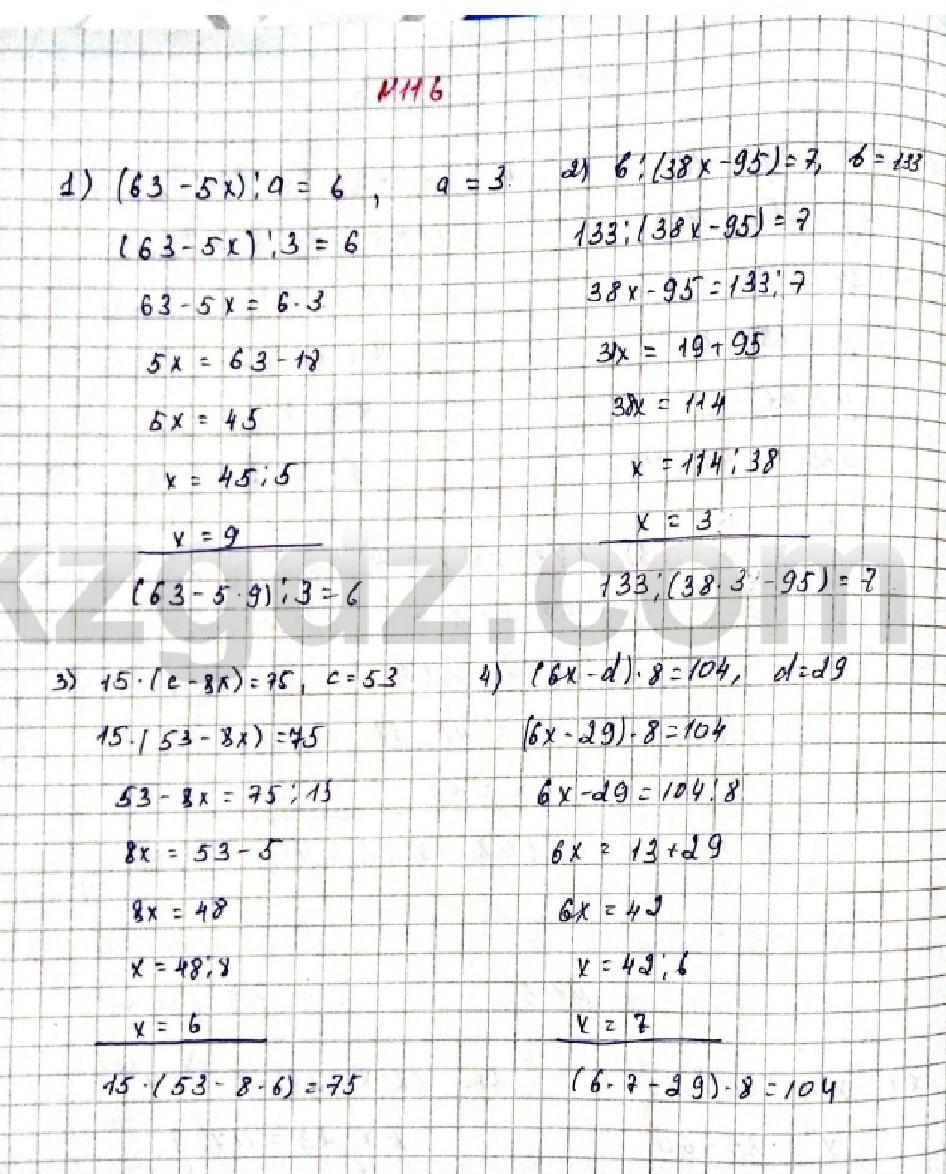 №116
1) (63-5x):a = 6, a = 3.
(63-5x):3 = 6
63-5x = 6·3
5x = 63-18
5x = 45
x = 45:5
x = 9
(63-5·9):3=6
2) b:(38x-95)=7, b=133
133:(38x-95)=7
38x-95=133:7
38x = 19+95
38x = 114
x = 114:38
x = 3
133:(38·3-95)=7.
kzgdz.com
3) 15·(c-8x)=75, c=53
15·(53-8x)=75
53-8x=75:15
8x = 53-5
8x = 48
x = 48:8
x = 6
15·(53-8·6)=75
4) (6x-d)·8=104, d=29
(6x-29)·8=104
6x-29=104:8
6x = 13+29
6x = 42
x = 42:6
x = 7
(6·7-29)·8=104